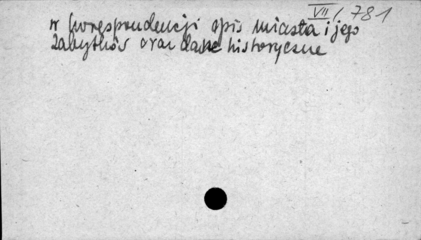 VII/781
w korespondencji opis miasta i jego
zabytków oraz dane historyczne